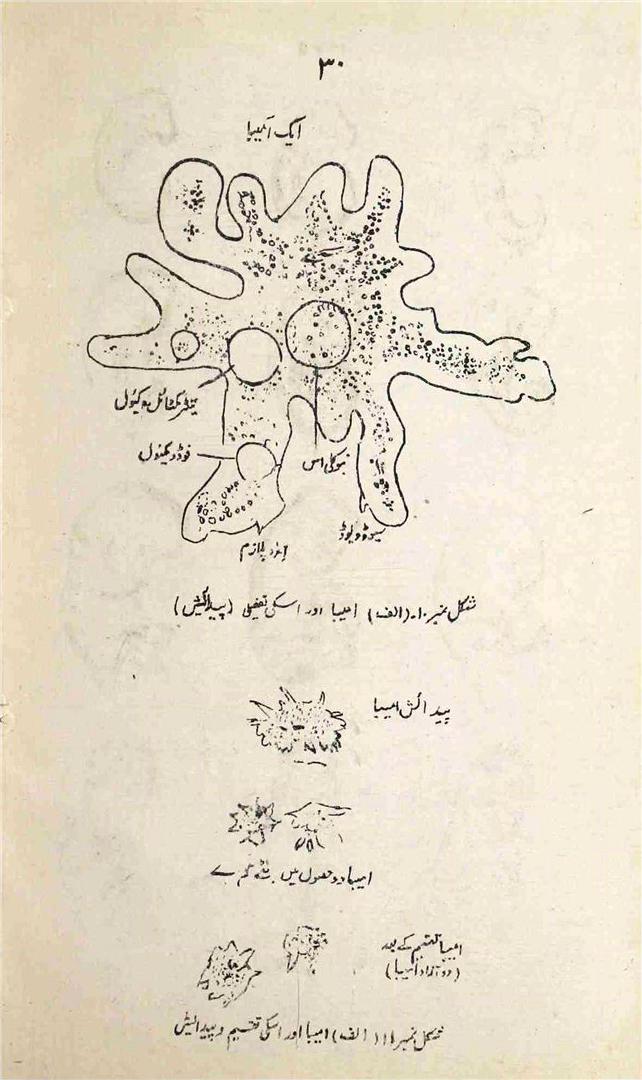 ۳۰
ایک امیبا
کنٹریکٹائل ویکیول
فوڈ ویکیول
نیوکلی اس
سیوڈوپوڈ
پلازم
شکل نمبر ۱۰۔(الف) امیبا اور اسکی تفصیلی (پیدائش)
پیدائش امیبا
امیبا دو حصوں میں
امیبا تقسیم کے بعد
(دو آزاد امیبا)
شکل نمبر ۱۱ (الف) امیبا اور اسکی تقسیم و پیدائش